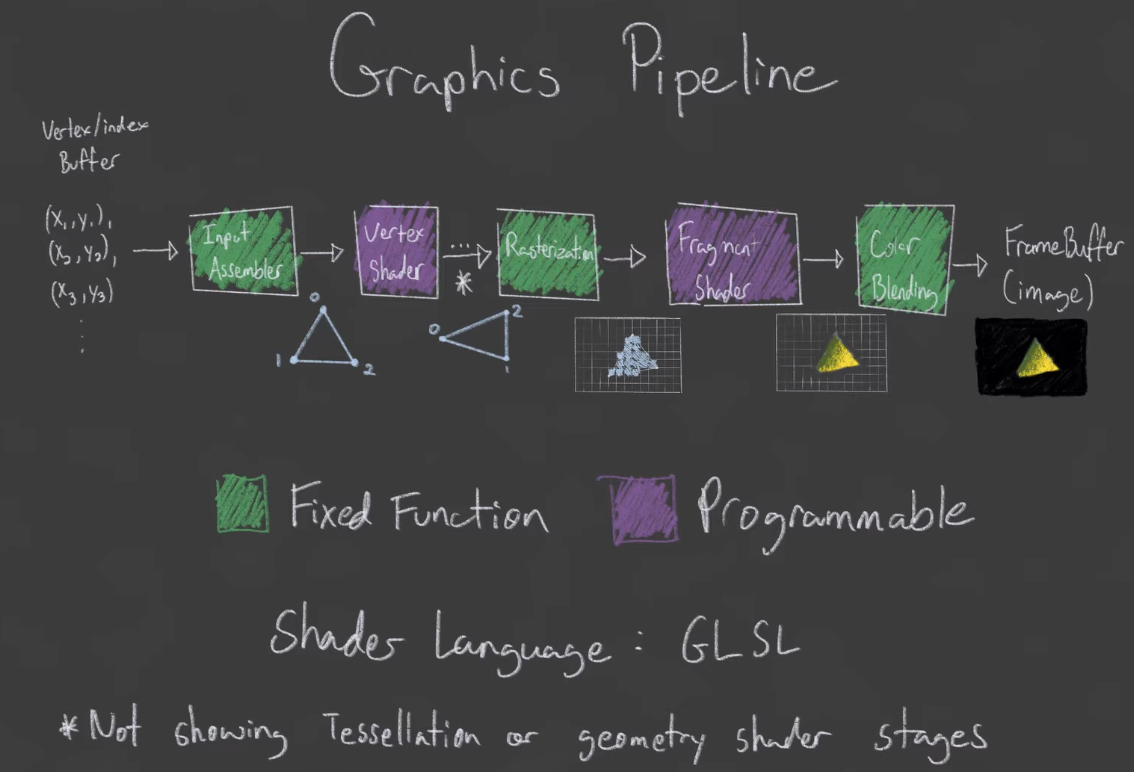 Graphics Pipeline
Vertex/index
Buffer
(x₁,y₁),
(x₂,y₂),
(x₃,y₃)
⋮
Input
Assembler
Vertex
Shader
...
*
Rasterization
Fragment
Shader
Color
Blending
FrameBuffer
(image)
0
1
2
0
2
1
Fixed Function
Programmable
Shader Language: GLSL
*Not showing Tessellation or geometry shader stages